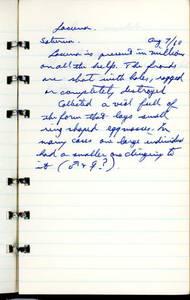 Lacuna.
Saturna. Aug 7/20
Lacuna is present in millions
on all the kelp. The fronds
are shot with holes, ragged
or completely destroyed
Collected a vial full of
the form that lays small
ring shaped eggmasses. In
many cases one large individual
had a smaller one clinging to
it (♂ & ♀?)